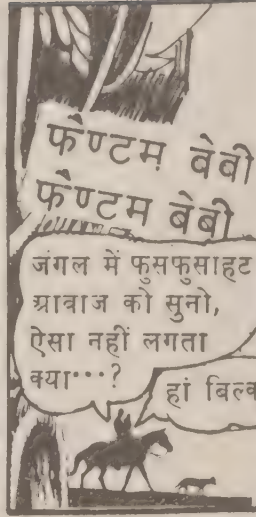 फैण्टम बेबी
फैण्टम बेबी
जंगल में फुसफुसाहट
आवाज को सुनो,
ऐसा नहीं लगता
क्या...?
हां